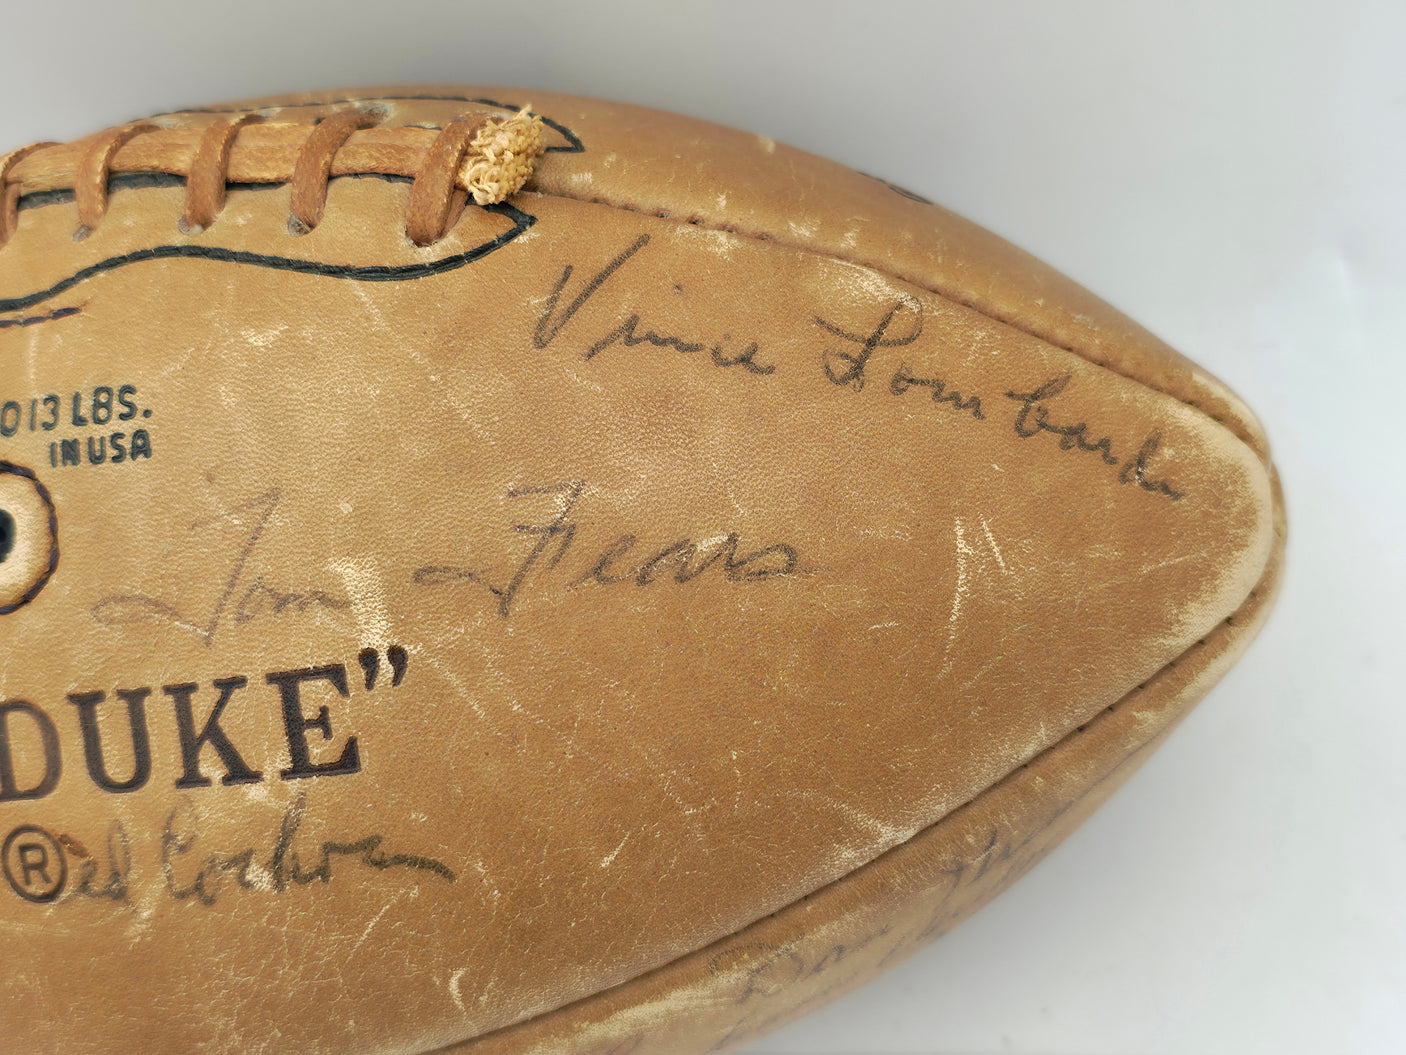 Vince Lombardi
13 LBS.
IN USA
Tom Fears
DUKE”
®
Red Cochran